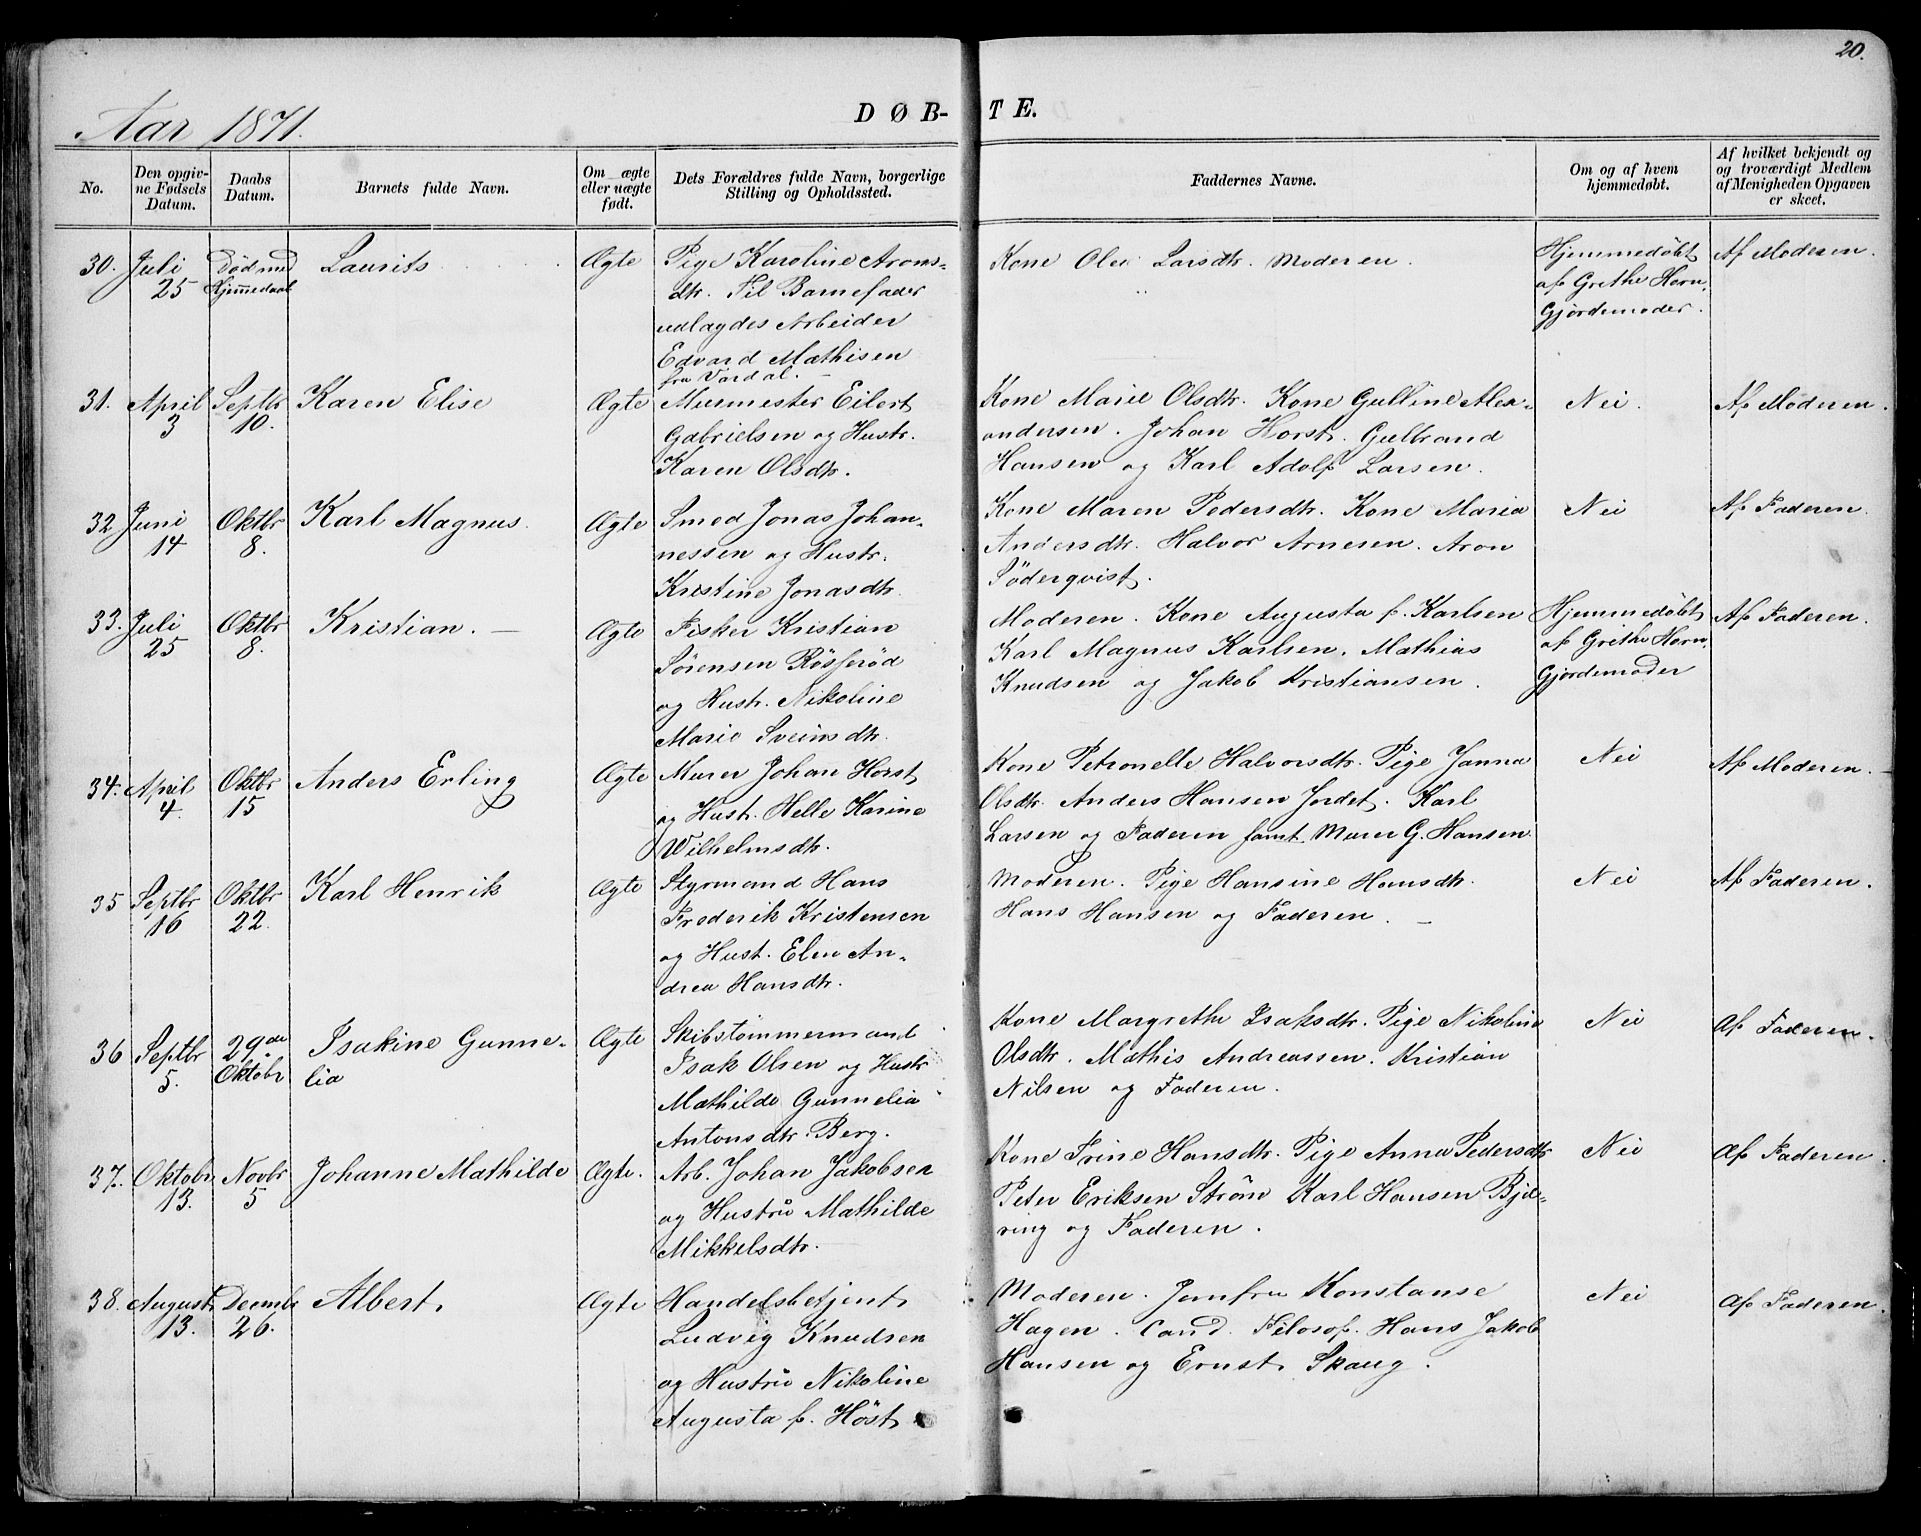 20.
Aar 1871.
DØB-
TE.
No.
Den opgiv-
ne Fødsels
Datum.
Daabs
Datum.
Barnets fulde Navn.
Om ægte
eller uægte
født.
Dets Forældres fulde Navn, borgerlige
Stilling og Opholdssted.
Faddernes Navne.
Om og af hvem
hjemmedøbt.
Af hvilket bekjendt og
og troværdigt Medlem
af Menigheden Opgaven
er skeet.
30.
Juli
25
Død med
Hjemmedaab
Laurits
Ægte
Pige Karoline Arons-
dtr. Til Barnefader
udlagdes Arbeider
Edvard Mathisen
fra Vardal.
Kone Olea Larsdtr. Moderen.
Hjemmedøbt
af Grethe Horn,
Gjordemoder.
Af Moderen.
31.
April
3
Septbr
10.
Karen Elise
Ægte
Murmester Eilert
Gabrielsen og Hustr.
Karen Olsdtr.
Kone Marie Olsdtr. Kone Gulline Alex-
andersen. Johan Horst. Gulbrand
Hansen og Karl Adolf Larsen.
Nei.
Af Moderen.
32
Juni
14
Oktbr
8.
Karl Magnus.
Ægte
Smed Jonas Johan-
nessen og Hustr.
Kristine Jonasdtr.
Kone Maren Pedersdtr. Kone Maria
Andersdtr. Halvor Arnesen. Aron
Söderqvist.
Nei
Af Faderen.
33.
Juli
25
Oktbr
8.
Kristian.
Ægte
Fisker Kristian
Sørensen Røsserød
og Hustr. Nikoline
Marie Sveinsdtr.
Moderen. Kone Augusta f. Karlsen
Karl Magnus Karlsen. Mathias
Knudsen og Jakob Kristiansen.
Hjemmedøbt
af Grethe Horn,
Gjordemoder
Af Faderen.
34.
April
4.
Oktbr
15
Anders Erling
Ægte
Murer Johan Horst
og Hustr. Helle Karine
Wilhelmsdtr.
Kone Petronelle Halvorsdtr. Pige Janna
Olsdtr. Anders Hansen Jordet. Karl
Larsen og Faderen samt Murer G. Hansen
Nei
Af Moderen.
35
Septbr
16
Oktbr
22.
Karl Henrik
Ægte
Styrmand Hans
Frederik Kristensen
og Hust. Elen An-
drea Hansdtr.
Moderen. Pige Hansine Hansdtr.
Hans Hansen og Faderen.
Nei
Af Faderen.
36
Septbr
5.
29de
Oktobr
Isakine Gunne-
lia
Ægte
Skibstømmermand
Isak Olsen og Hustr
Mathilde Gunnelia
Antonsdtr. Berg.
Kone Margrethe Isaksdtr. Pige Nikoline
Olsdtr. Mathis Andreassen. Kristian
Nilsen og Faderen.
Nei
Af Faderen.
37.
Oktobr
13.
Novbr
5
Johanne Mathilde
Ægte.
Arb. Johan Jakobsen
og Hustru Mathilde
Mikkelsdtr.
Kone Trine Hansdtr. Pige Anna Pedersdtr
Peter Eriksen Strøm Karl Hansen Bjer-
ring og Faderen.
Nei
Af Faderen.
38.
August
13.
Decmbr
26.
Albert.
Ægte
Handelsbetjent
Ludvig Knudsen
og Hustru Nikoline
Augusta f. Höst
Moderen. Jomfru Konstanse
Hagen. Cand. Filosof. Hans Jakob
Hansen og Ernst Skaug.
Nei
Af Faderen.